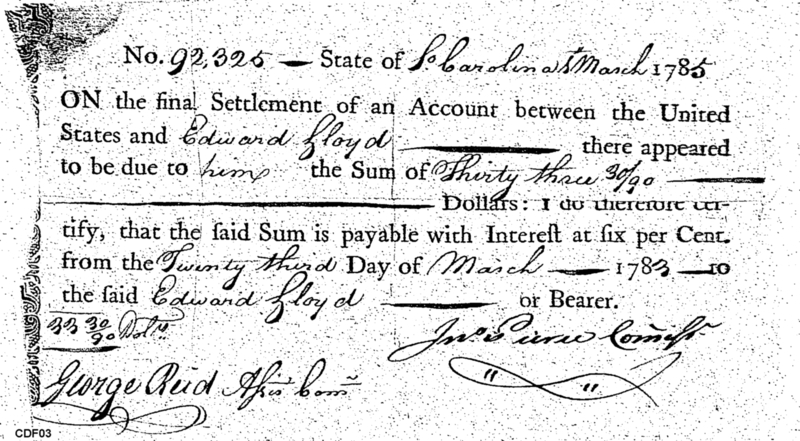 No. 92,325 — State of So. Carolina 1st March 1785
ON the final Settlement of an Account between the United
States and Edward Lloyd — there appeared
to be due to him the Sum of Thirty three 30/90 —
— Dollars: I do therefore cer-
tify, that the said Sum is payable with Interest at six per Cent.
from the Twenty third Day of March — 1783 — to
the said Edward Lloyd — or Bearer.
33 30/90 Dolrs.
Jno. Pierce Commissr.
George Reid Assis. Com.
CDF03